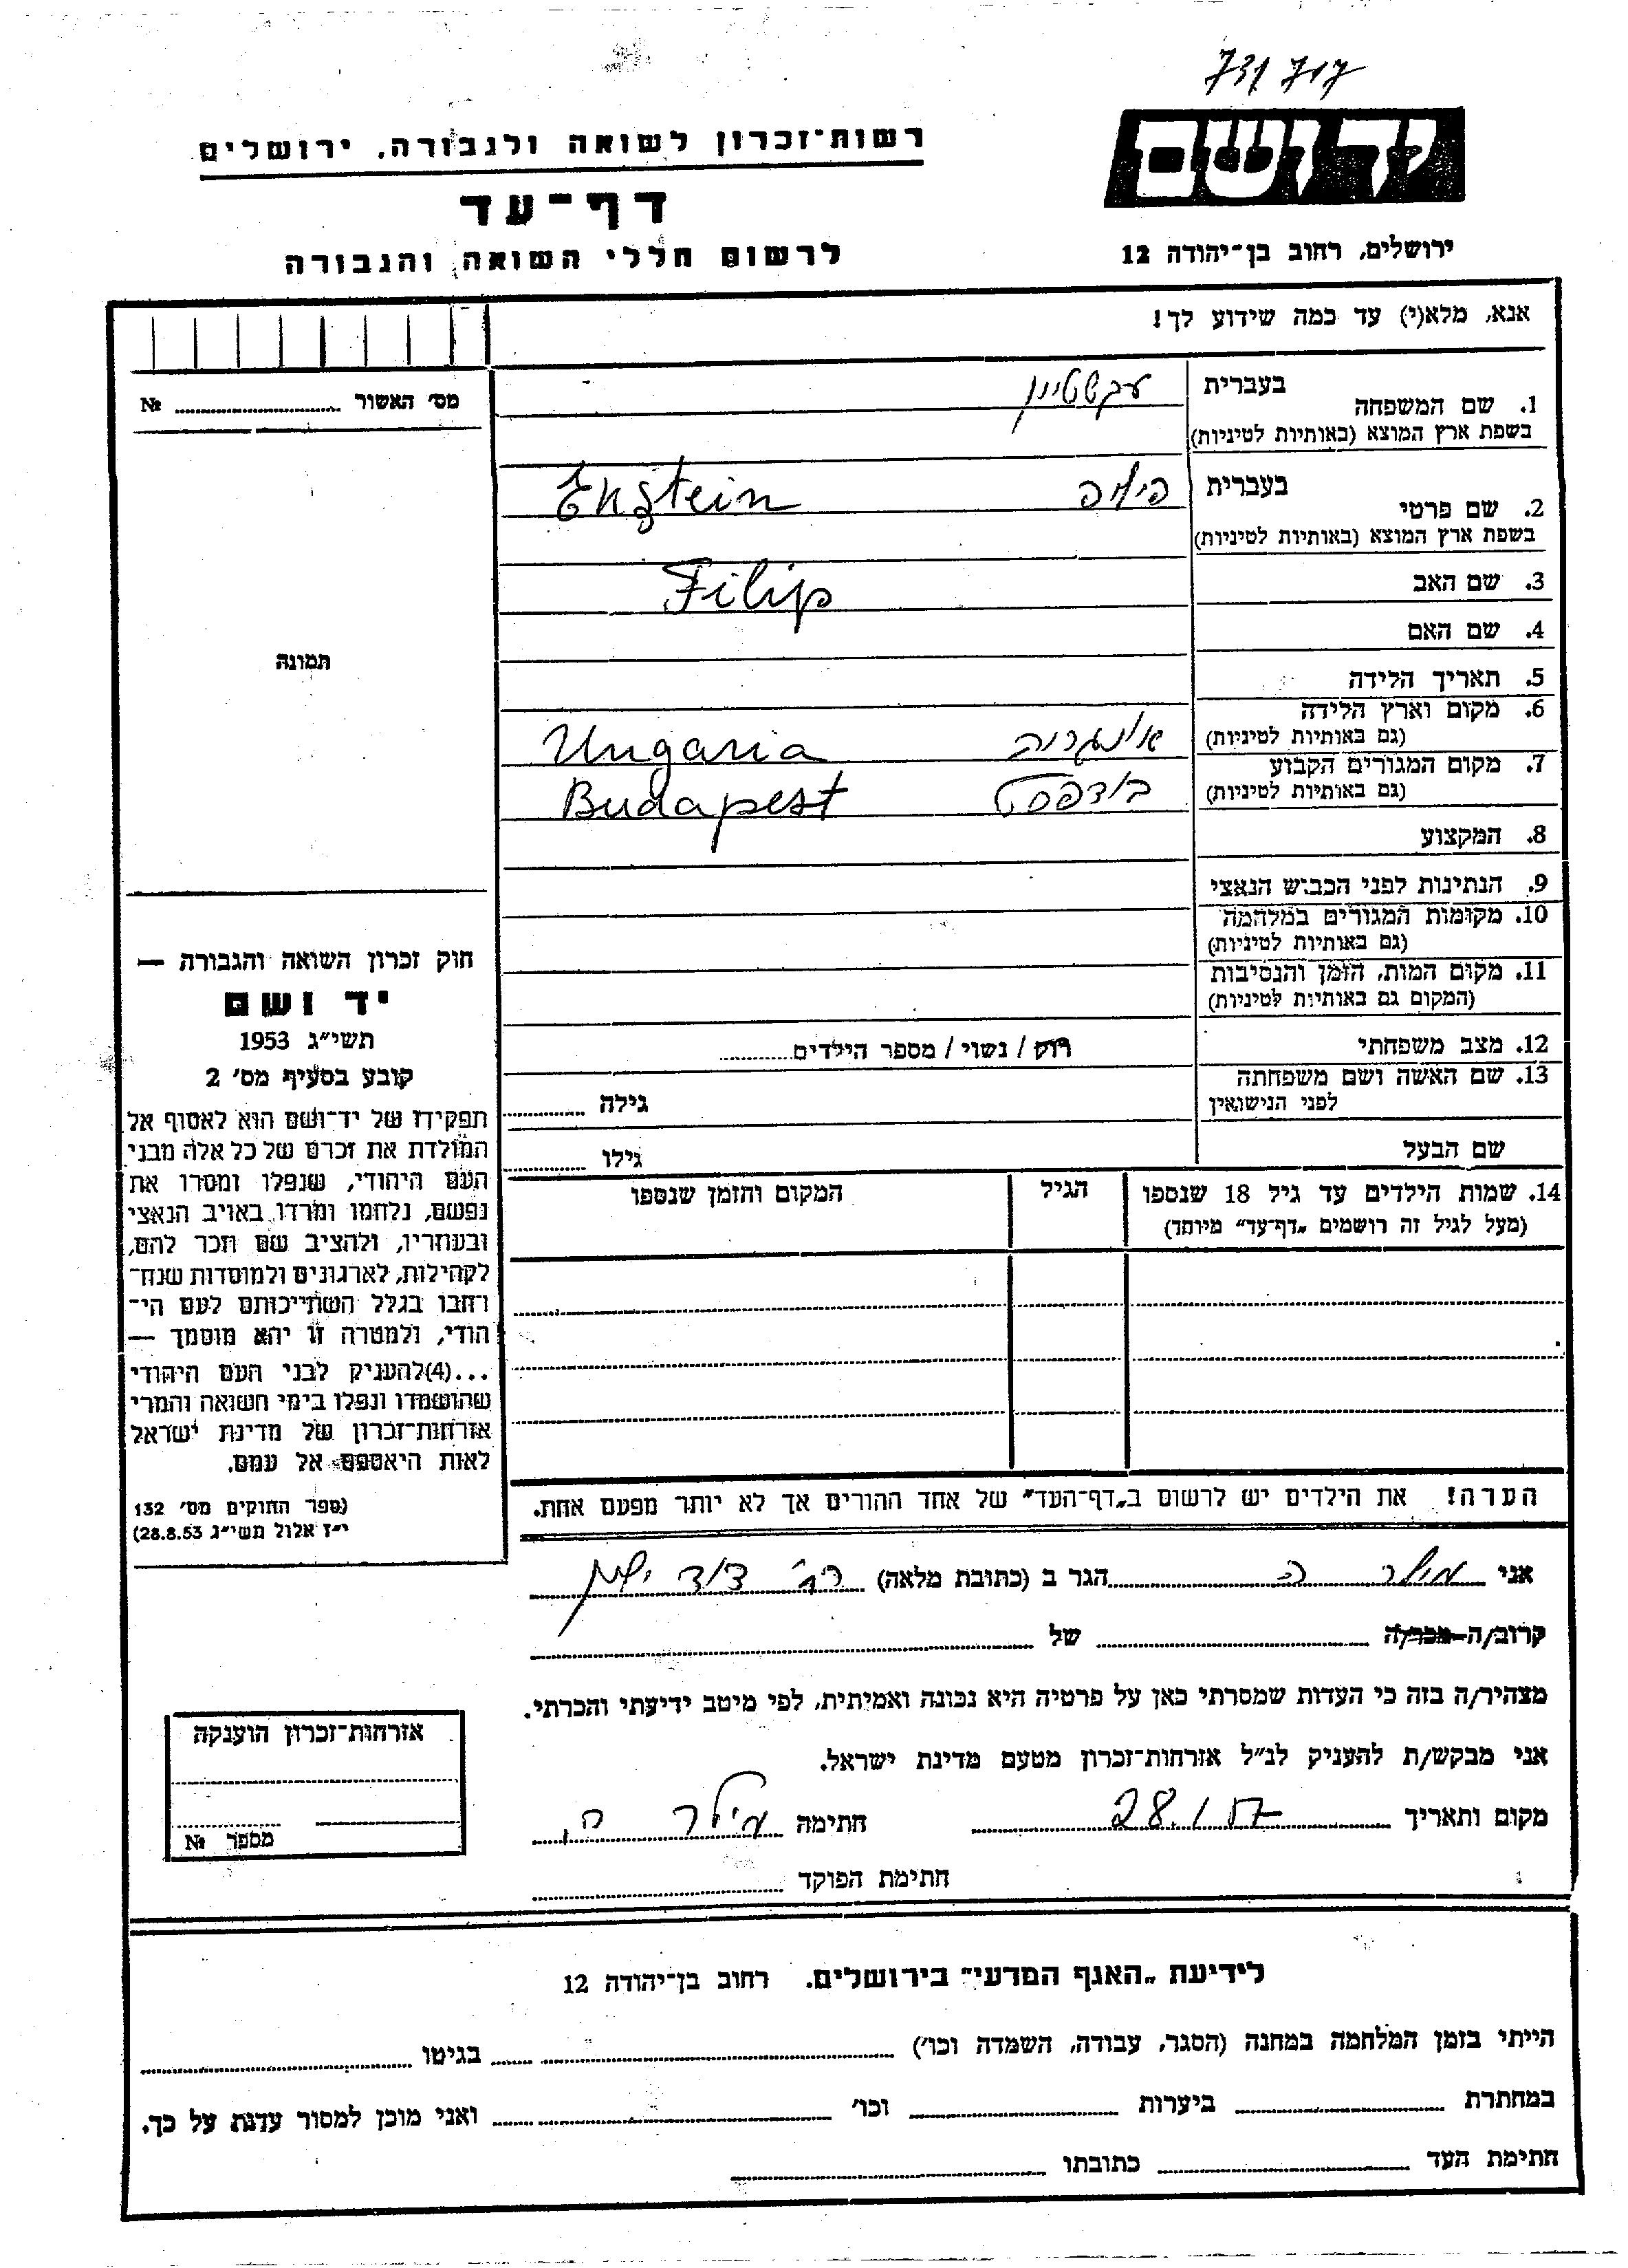 731 717
יד ושם
ירושלים, רחוב בן־יהודה 12
רשות־זכרון לשואה ולגבורה, ירושלים
דף־עד
לרשום חללי השואה והגבורה
אנא, מלא(י) עד כמה שידוע לך!
1. שם המשפחה בעברית עקשטיין
בשפת ארץ המוצא (באותיות לטיניות)
Ekstein
2. שם פרטי בעברית פיליפ
בשפת ארץ המוצא (באותיות לטיניות)
Filip
3. שם האב
4. שם האם
5. תאריך הלידה
6. מקום וארץ הלידה
(גם באותיות לטיניות) אונגריה Ungaria
7. מקום המגורים הקבוע
(גם באותיות לטיניות) בודפסט Budapest
8. המקצוע
9. הנתינות לפני הכבוש הנאצי
10. מקומות המגורים במלחמה
(גם באותיות לטיניות)
11. מקום המות, הזמן והנסיבות
(המקום גם באותיות לטיניות)
12. מצב משפחתי רוק / נשוי / מספר הילדים
13. שם האשה ושם משפחתה
לפני הנישואין גילה
שם הבעל גילו
14. שמות הילדים עד גיל 18 שנספו הגיל המקום והזמן שנספו
(מעל לגיל זה רושמים „דף־עד" מיוחד)
הערה! את הילדים יש לרשום ב„דף־העד" של אחד ההורים אך לא יותר מפעם אחת.
מס' האשור №
תמונה
חוק זכרון השואה והגבורה —
יד ושם
תשי"ג 1953
קובע בסעיף מס' 2
תפקידו של יד־ושם הוא לאסוף אל
המולדת את זכרם של כל אלה מבני
העם היהודי, שנפלו ומסרו את
נפשם, נלחמו ומרדו באויב הנאצי
ובעוזריו, ולהציב שם וזכר להם,
לקהילות, לארגונים ולמוסדות שנח־
רחבו בגלל השתייכותם לעם הי־
הודי, ולמטרה זו יהא מוסמך —
...(4)להעניק לבני העם היהודי
שהושמדו ונפלו בימי השואה והמרי
אזרחות־זכרון של מדינת ישראל
לאות היאספם אל עמם.
(ספר החוקים מס' 132
י"ז אלול תשי"ג 28.8.53)
אני מילר ה הגר ב (כתובת מלאה) רח' דוד
קרוב/ה מכר/ה של
מצהיר/ה בזה כי העדות שמסרתי כאן על פרטיה היא נכונה ואמיתית, לפי מיטב ידיעתי והכרתי.
אני מבקש/ת להעניק לנ"ל אזרחות־זכרון מטעם מדינת ישראל.
מקום ותאריך 28.1.57 חתימה מילר ה.
חתימת הפוקד
אזרחות־זכרון הוענקה
מספר №
לידיעת „האגף המדעי" בירושלים. רחוב בן־יהודה 12
הייתי בזמן המלחמה במחנה (הסגר, עבודה, השמדה וכו') בגיטו
במחתרת ביערות וכו' ואני מוכן למסור עדות על כך.
חתימת העד כתובתו